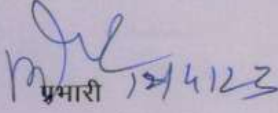 प्रभारी 12/4/23